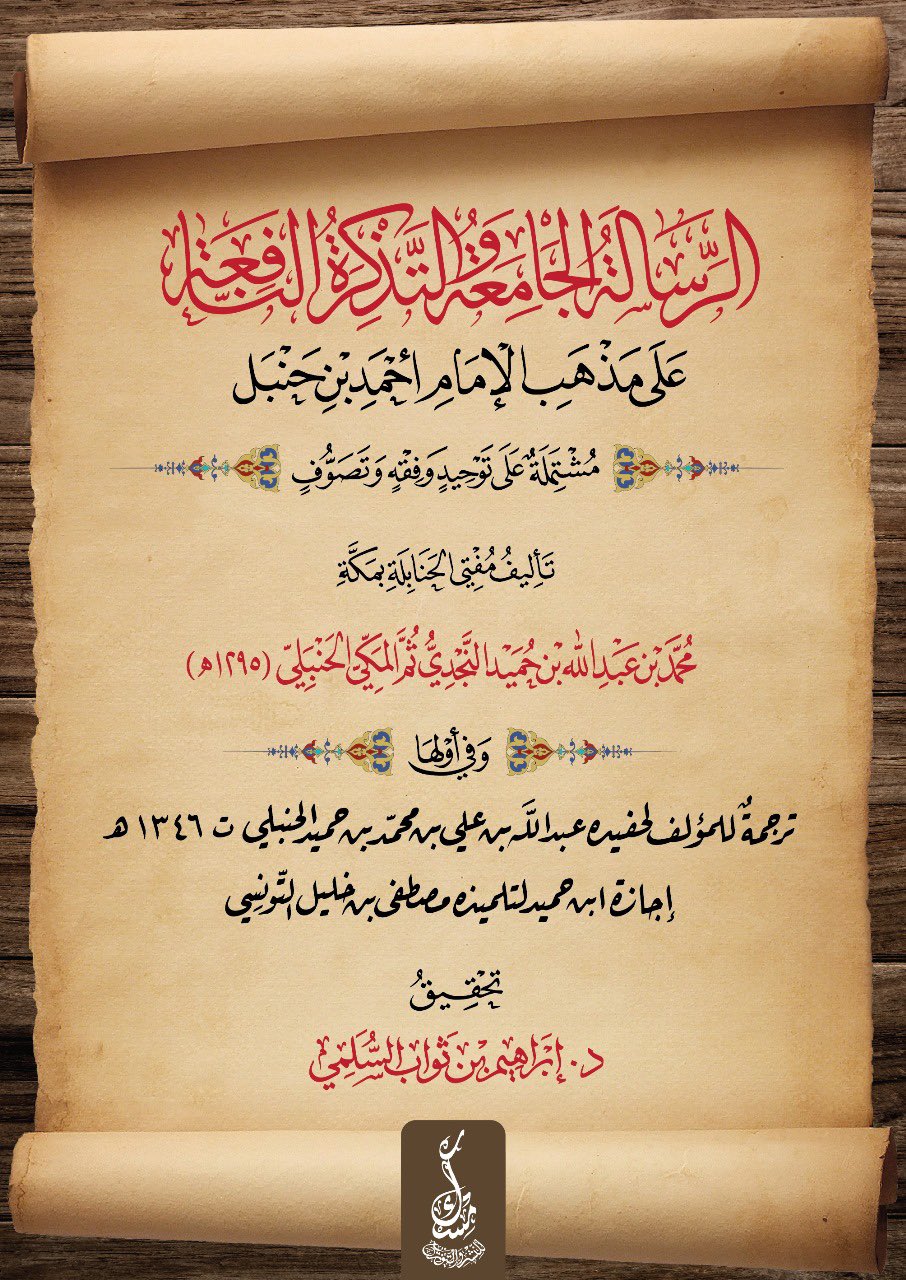 الرِّسَالَةُ الجَامِعَةُ وَالتَّذْكِرَةُ النَّافِعَةُ
عَلَى مَذْهَبِ الإِمَامِ أَحْمَدِ بْنِ حَنْبَل
مُشْتَمِلَةٌ عَلَى تَوْحِيدٍ وَفِقْهٍ وَتَصَوُّفٍ
تَأْلِيفُ مُفْتِي الحَنَابِلَةِ بِمَكَّةِ
مُحَمَّد بْن عَبْدِ اللهِ بْن حُمَيد النَّجْدِيُّ ثُمَّ المَكِّيّ الحَنْبَلِيّ (١٢٩٥ه)
وَفِي أَوَّلِهَا
ترجمةٌ للمؤلف لحفيده عبد اللَّه بن علي بن محمّد بن حميد الحنبلي ت ١٣٤٦ ه
إجازة ابن حميد لتلميذه مصطفى بن خليل التّونسِي
تَحْقِيقُ
د. إِبْرَاهِيم بْن ثَوَاب السُّلَمِي